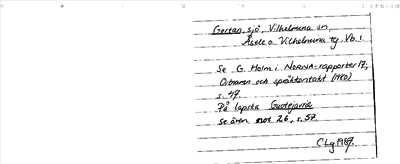 Gertan, sjö, Vilhelmina sn,
Åsele o Vilhelmina tg. Vb.
Se G. Holm i NORNA-rapporter 17,
Ortnamn och språkkontakt (1980)
s. 47.
På lapska
Se även not 26, s. 57
CLg 1987.